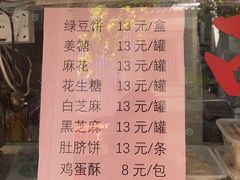 绿豆饼 13 元/盒
姜糖 13 元/罐
麻花 13 元/罐
花生糖 13 元/罐
白芝麻 13 元/罐
黑芝麻 13 元/罐
肚脐饼 13 元/条
鸡蛋酥 8 元/包